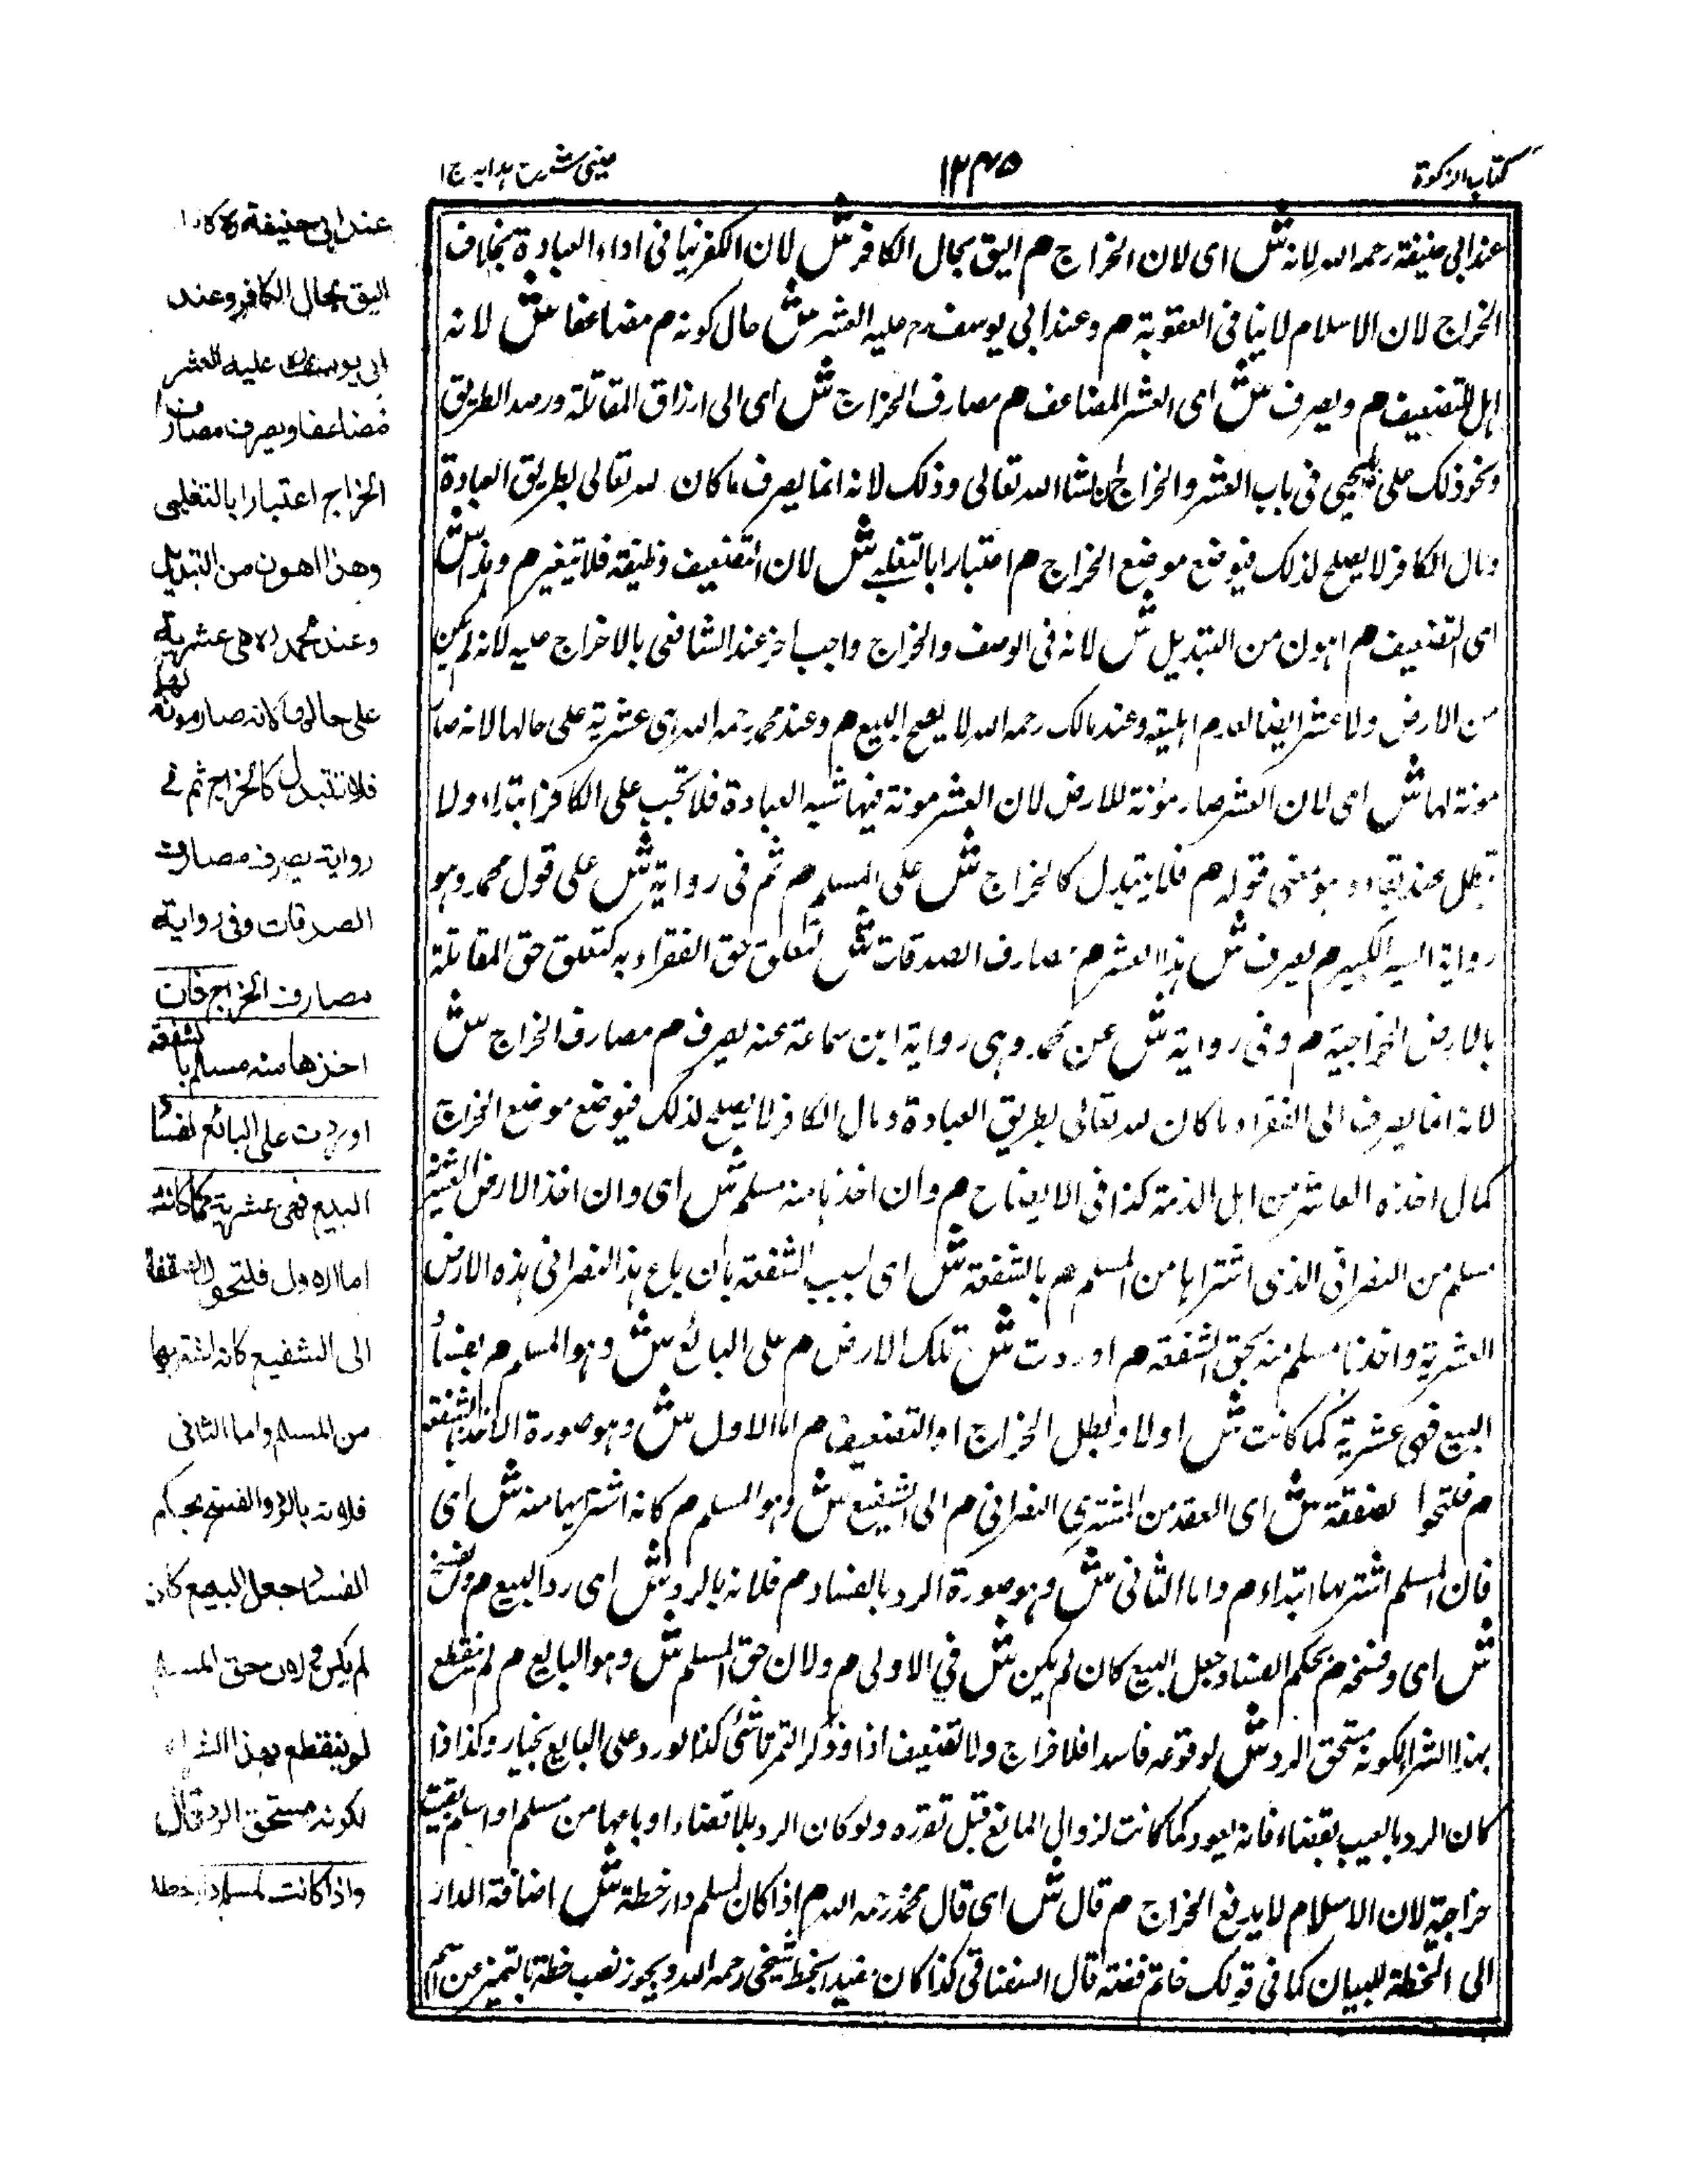 كتاب الزكوة
١٢٤٥
عيني شرح هدايه ج ١
عند ابي حنيفة رحمه الله لانه ش اى لان الخراج م اليق بحال الكافر ش لان الكفر ينافى اداء العبادة بخلاف
الخراج لان الاسلام لا ينافى العقوبة م وعند ابي يوسف رح عليه العشر ش حال كونه م مضاعفا ش لانه
اهل للتضعيف م ويصرف ش اى العشر المضاعف م مصارف الخراج ش اى الى ارزاق المقاتلة ورصد الطريق
ونحو ذلك على ما يجيئ فى باب العشر والخراج ان شاء الله تعالى وذلك لانه انما يصرف ما كان لله تعالى بطريق العبادة
ومال الكافر لا يصلح لذلك فيوضع موضع الخراج م اعتبارا بالتغلبي ش لان التضعيف وظيفة فلا يتغير م وهذا ش
اى التضعيف م اهون من التبديل ش لانه فى الوصف والخراج واجب اخر عند الشافعى بالاخراج عليه لانه لم يكن
من الارض ولا عشر ايضا لعدم اهليته وعند مالك رحمه الله لا يصح البيع م وعند محمد رحمه الله هى عشرية على حالها لانه صار
مونة لها ش اى لان العشر صار مؤنة للارض لان العشر مونة فيها شبه العبادة فلا تجب على الكافر ابتداء ولا
تبطل عند بقاءه وهو معنى قوله م فلا يتبدل كالخراج ش على المسلم م ثم فى رواية ش على قول محمد وهو
رواية السير الكبير م يصرف ش هذا العشر م مصارف الصدقات ش لتعلق حق الفقراء به كتعلق حق المقاتلة
بالارض الخراجية م وفى رواية ش عن محمد وهى رواية ابن سماعة عنه يصرف م مصارف الخراج ش
لانه انما يصرف الى الفقراء ما كان لله تعالى بطريق العبادة ومال الكافر لا يصلح لذلك فيوضع موضع الخراج
كمال اخذه العاشر من اهل الذمة كذا فى الايضاح م وان اخذها منه مسلم ش اى وان اخذ الارض العشرية
مسلم من النصرانى الذى اشتراها من المسلم م بالشفعة ش اى بسبب الشفعة بان باع هذا النصرانى هذه الارض
العشرية واخذها مسلم منه بحق الشفعة م اوردت ش تلك الارض م على البائع ش وهو المسلم م بفساد
البيع فهى عشرية كما كانت ش اولا وبطل الخراج او التضعيف م اما الاول ش وهو صورة الاخذ بالشفعة
م فلتحول الصفقة ش اى العقد من المشترى النصرانى م الى الشفيع ش وهو المسلم م كانه اشتريها منه ش اى
فان المسلم اشتريها ابتداء م واما الثانى ش وهو صورة الرد بالفساد م فلانه بالرد ش اى رد البيع م والفسخ
ش اى وفسخه م بحكم الفساد جعل البيع كان لم يكن ش في الاولى م ولان حق المسلم ش وهو البايع م لم ينقطع
بهذا الشراء لكونه مستحق الرد ش لوقوعه فاسدا فلا خراج ولا تضعيف اذا وذكر التمرتاشى كذا لورد على البايع بخيار وكذا اذا
كان الرد بالعيب بقضاء فانه يعود كما كانت لزوال المانع قبل تقرره ولو كان الرد بلا قضاء او باعها من مسلم او اسلم بقيت
خراجية لان الاسلام لا يدفع الخراج م قال ش اى قال محمد رحمه الله م اذا كان لمسلم دار خطة ش اضافة الدار
الى الخطة للبيان كما فى قولك خاتم فضة قال السغناقى كذا كان مقيدا بخط شيخى رحمه الله ويجوز نصب خطة بالتميز عن اسم
عند ابى حنيفة رح لانه
اليق بحال الكافر وعند
ابى يوسف رح عليه العشر
مضاعفا ويصرف مصارف
الخراج اعتبارا بالتغلبى
وهذا اهون من التبديل
وعند محمد رح هى عشرية
على حالها لانه صار مونة لها
فلا تتبدل كالخراج ثم فى
رواية يصرف مصارف
الصدقات وفى رواية
مصارف الخراج فان
اخذها منه مسلم بالشفعة
اوردت على البائع لفساد
البيع فهى عشرية كما كانت
اما الاول فلتحول الصفقة
الى الشفيع كانه اشتريها
من المسلم واما الثانى
فلانه بالرد والفسخ بحكم
الفساد جعل البيع كان
لم يكن ولان حق المسلم
لم ينقطع بهذا الشراء
لكونه مستحق الرد قال
واذا كانت لمسلم دار خطة